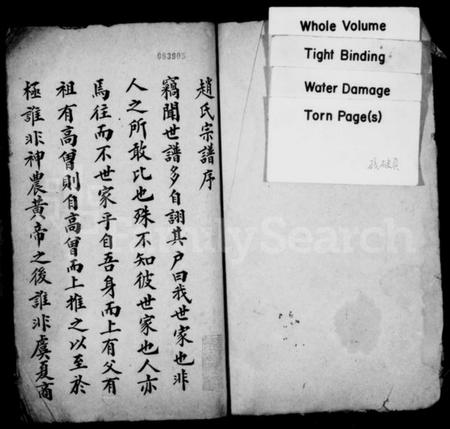 趙氏宗譜序
竊聞世譜多自詡其戶曰我世家也非
人之所敢比也殊不知彼世家也人亦
焉往而不世家乎自吾身而上有父有
祖有高曾則自高曾而上推之以至於
極誰非神農黃帝之後誰非虞夏商
083805
Whole Volume
Tight Binding
Water Damage
Torn Page(s)
FamilySearch